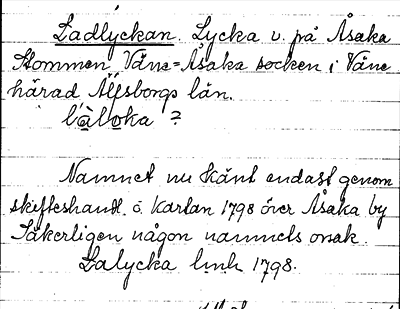 Ladlyckan. Lycka v. på Åsaka
Stommen, Väne-Åsaka socken i Väne
härad Älfsborgs län.
l'àlɷka ?
Namnet nu känt endast genom
skifteshandl. o. kartan 1798 över Åsaka by
Säkerligen någon namnets orsak.
Lalycka lmh 1798.